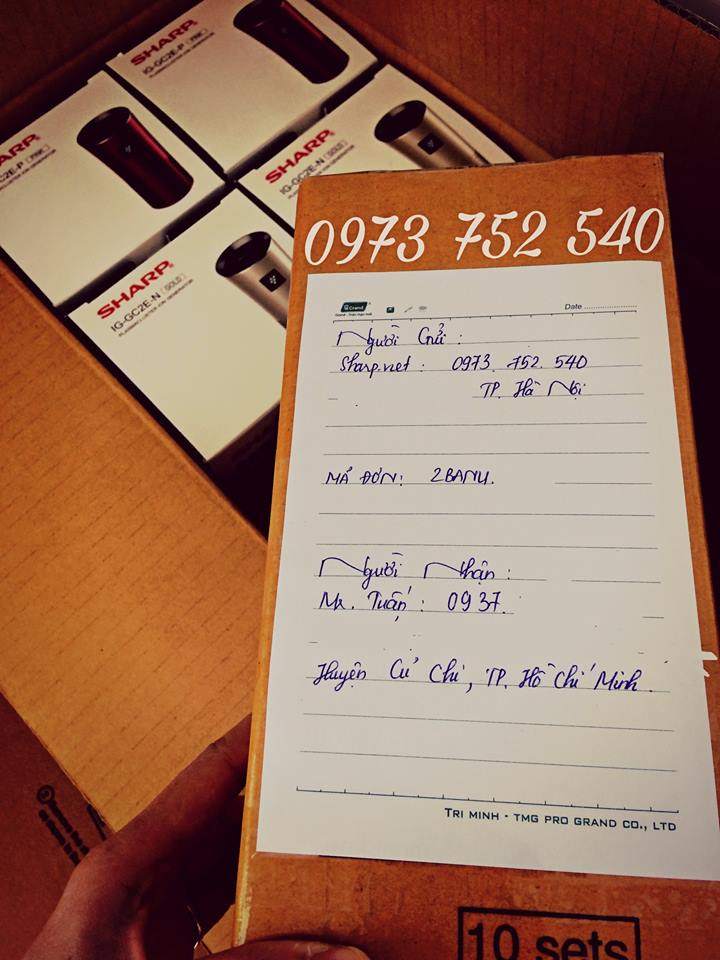 SHARP
IG-GC2E-P PINK
PLASMACLUSTER ION GENERATOR
SHARP
IG-GC2E-N GOLD
SHARP
IG-GC2E-N GOLD
PLASMACLUSTER ION GENERATOR
0973 752 540
Grand
Date
Người Gửi :
Sharp.vet : 0973. 752. 540
TP. Hà Nội
MÃ ĐƠN: 2BANU.
Người Nhận :
Mr. Tuấn : 0937.
Huyện Củ Chi, TP. Hồ Chí Minh.
TRI MINH - TMG PRO GRAND CO., LTD
10 sets